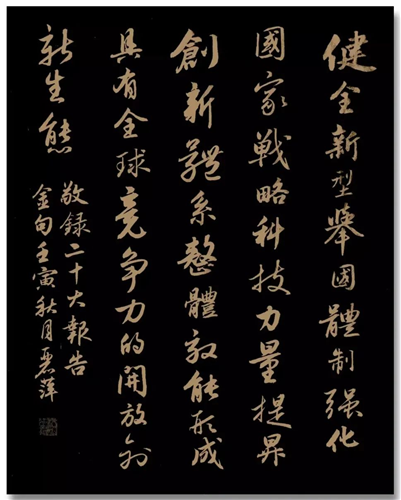 健全新型舉國體制强化
國家戰略科技力量提昇
創新體系整體效能形成
具有全球竞争力的開放创
新生態
敬録二十大報告
金句壬寅秋月萍